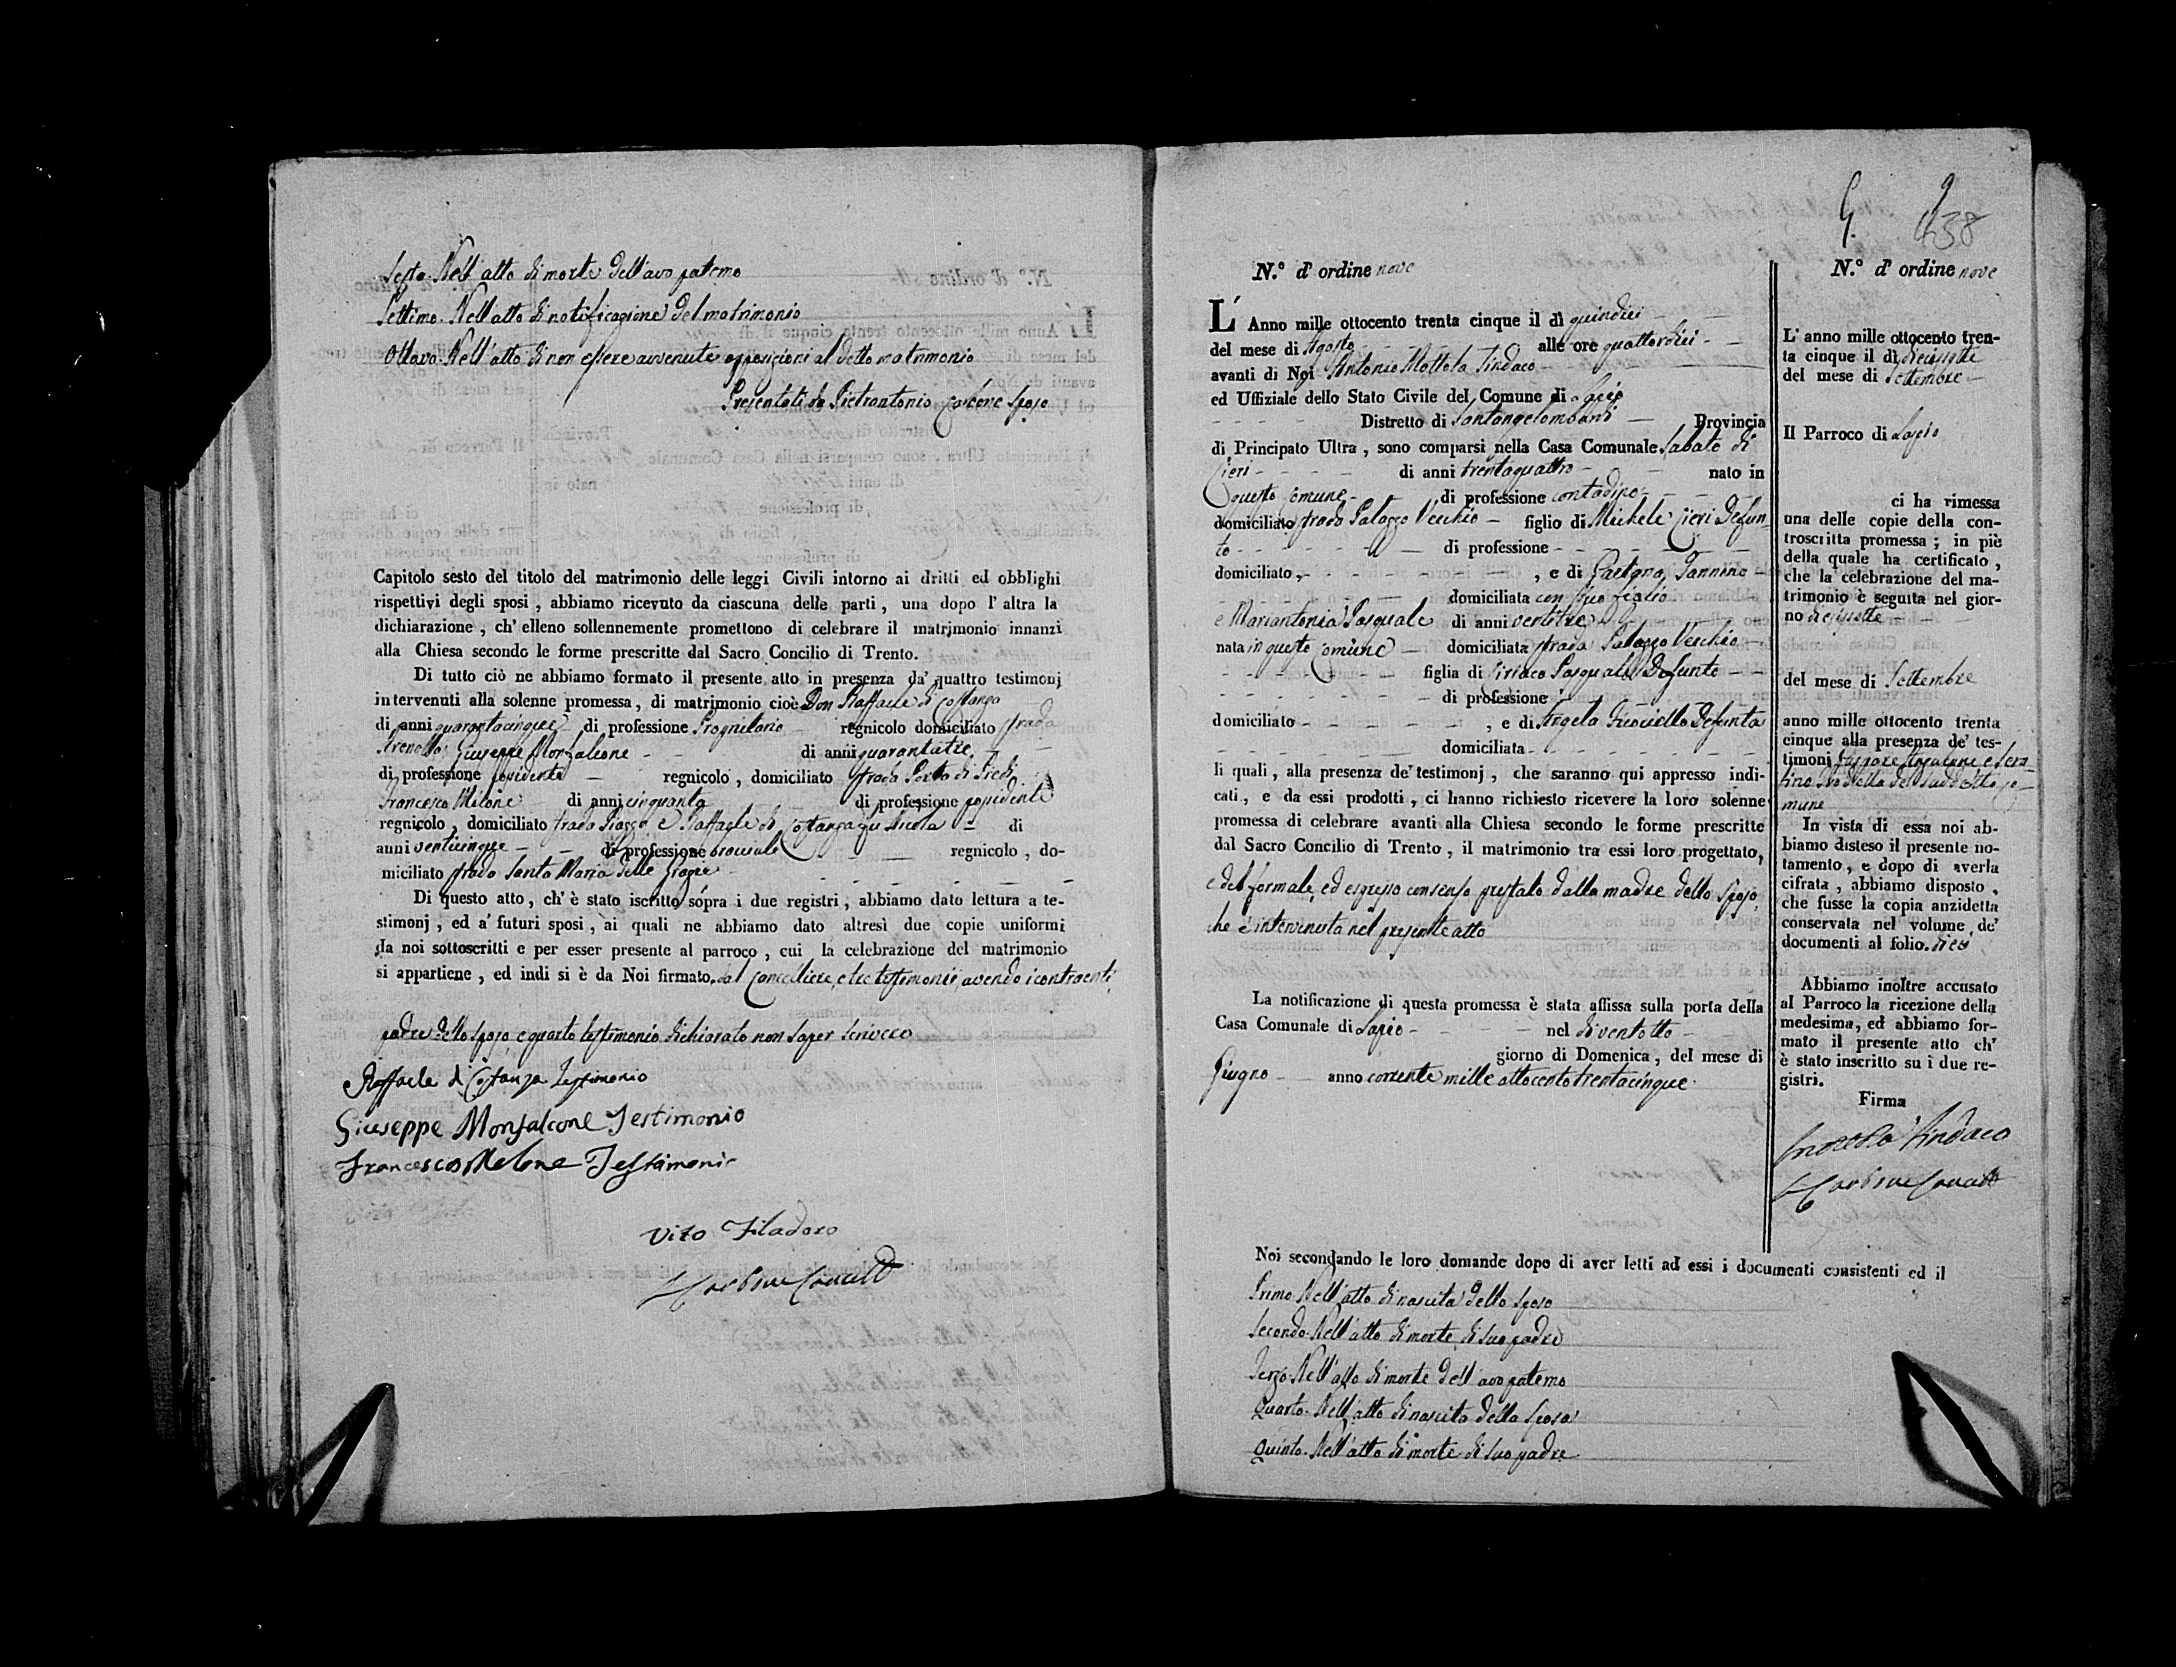 Sesto. Nell'atto di morte dell'avo paterno
Settimo. Nell'atto di notificazione del matrimonio
Ottavo. Nell'atto di non essere avvenute opposizioni al detto matrimonio
Presentati da Pietrantonio Carbone sposo
Capitolo sesto del titolo del matrimonio delle leggi Civili intorno ai dritti ed obblighi
rispettivi degli sposi, abbiamo ricevuto da ciascuna delle parti, una dopo l'altra la
dichiarazione, ch'elleno sollennemente promettono di celebrare il matrimonio innanzi
alla Chiesa secondo le forme prescritte dal Sacro Concilio di Trento.
Di tutto ciò ne abbiamo formato il presente atto in presenza da' quattro testimonj
intervenuti alla solenne promessa, di matrimonio cioè Don Raffaele di Costanza
di anni quarantacinque di professione Proprietario regnicolo domiciliato strada
Giuseppe Monfalcone di anni quarantatre
di professione possidente regnicolo, domiciliato strada Porta di Piedi
Francesco Melone di anni cinquanta di professione possidente
regnicolo, domiciliato strada Piazza e Raffaele di Costanza fu Nicola di
anni venticinque di professione bracciale regnicolo, do-
miciliato strada Santa Maria delle Grazie
Di questo atto, ch'è stato iscritto sópra i due registri, abbiamo dato lettura a te-
stimonj, ed a' futuri sposi, ai quali ne abbiamo dato altresì due copie uniformi
da noi sottoscritti e per esser presente al parroco, cui la celebrazione del matrimonio
si appartiene, ed indi si è da Noi firmato, dal Cancelliere, e tre testimonii, avendo i contraenti,
padre dello sposo, e quarto testimonio dichiarato non saper scrivere
Raffaele di Costanza Testimonio
Giuseppe Monfalcone Testimonio
Francesco Melone Testimonio
Vito Filadoro
9 438
N.° d'ordine nove
L' Anno mille ottocento trenta cinque il dì quindici
del mese di Agosto alle ore quattordici
avanti di Noi Antonio Mottola Sindaco
ed Uffiziale dello Stato Civile del Comune di Lapio
Distretto di Santangelombardi Provincia
di Principato Ultra, sono comparsi nella Casa Comunale Sabato di
Cieri di anni trentaquattro nato in
questo Comune di professione contadino
domiciliato strada Palazzo Vecchio figlio di Michele Cieri Defun-
to di professione
domiciliato, , e di Gaetana Iannino
domiciliata con suo figlio
e Mariantonia Pasquale di anni ventitre
nata in questo Comune domiciliata strada Palazzo Vecchio
figlia di Ciriaco Pasquale Defunto
di professione
domiciliato , e di Angela Defunta
domiciliata
li quali, alla presenza de' testimonj, che saranno qui appresso indi-
cati, e da essi prodotti, ci hanno richiesto ricevere la loro solenne
promessa di celebrare avanti alla Chiesa secondo le forme prescritte
dal Sacro Concilio di Trento, il matrimonio tra essi loro progettato,
e del formale, ed espresso consenso prestato dalla madre dello sposo,
che è intervenuta nel presente atto
La notificazione di questa promessa è stata affissa sulla porta della
Casa Comunale di Lapio nel dì ventotto
giorno di Domenica, del mese di
Giugno anno corrente mille ottocento trentacinque
N.° d'ordine nove
L'anno mille ottocento tren-
ta cinque il dì diciassette
del mese di Settembre
Il Parroco di Lapio
ci ha rimessa
una delle copie della con-
troscritta promessa; in piè
della quale ha certificato,
che la celebrazione del ma-
trimonio è seguita nel gior-
no diciassette
del mese di Settembre
anno mille ottocento trenta
cinque alla presenza de' tes-
timonj
del suddetto Co-
mune
In vista di essa noi ab-
biamo disteso il presente no-
tamento, e dopo di averla
cifrata, abbiamo disposto,
che fusse la copia anzidetta
conservata nel volume de'
documenti al folio. dieci
Abbiamo inoltre accusato
al Parroco la ricezione della
medesima, ed abbiamo for-
mato il presente atto ch'
è stato inscritto su i due re-
gistri.
Firma
Sindaco
Noi secondando le loro domande dopo di aver letti ad essi i documenti consistenti ed il
Primo. Nell'atto di nascita dello sposo
Secondo. Nell'atto di morte di suo padre
Terzo. Nell'atto di morte dell'avo paterno
Quarto. Nell'atto di nascita della sposa
Quinto. Nell'atto di morte di suo padre